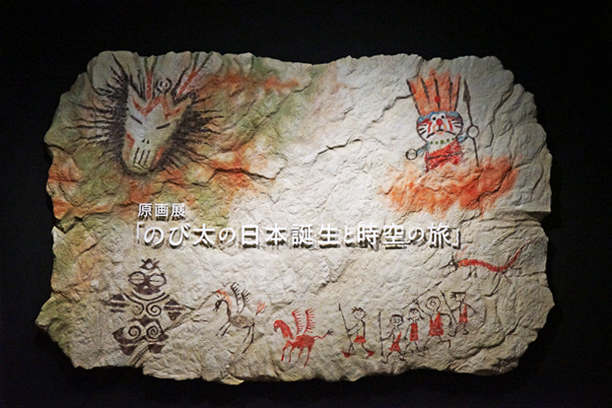 原画展
「のび太の日本誕生と時空の旅」